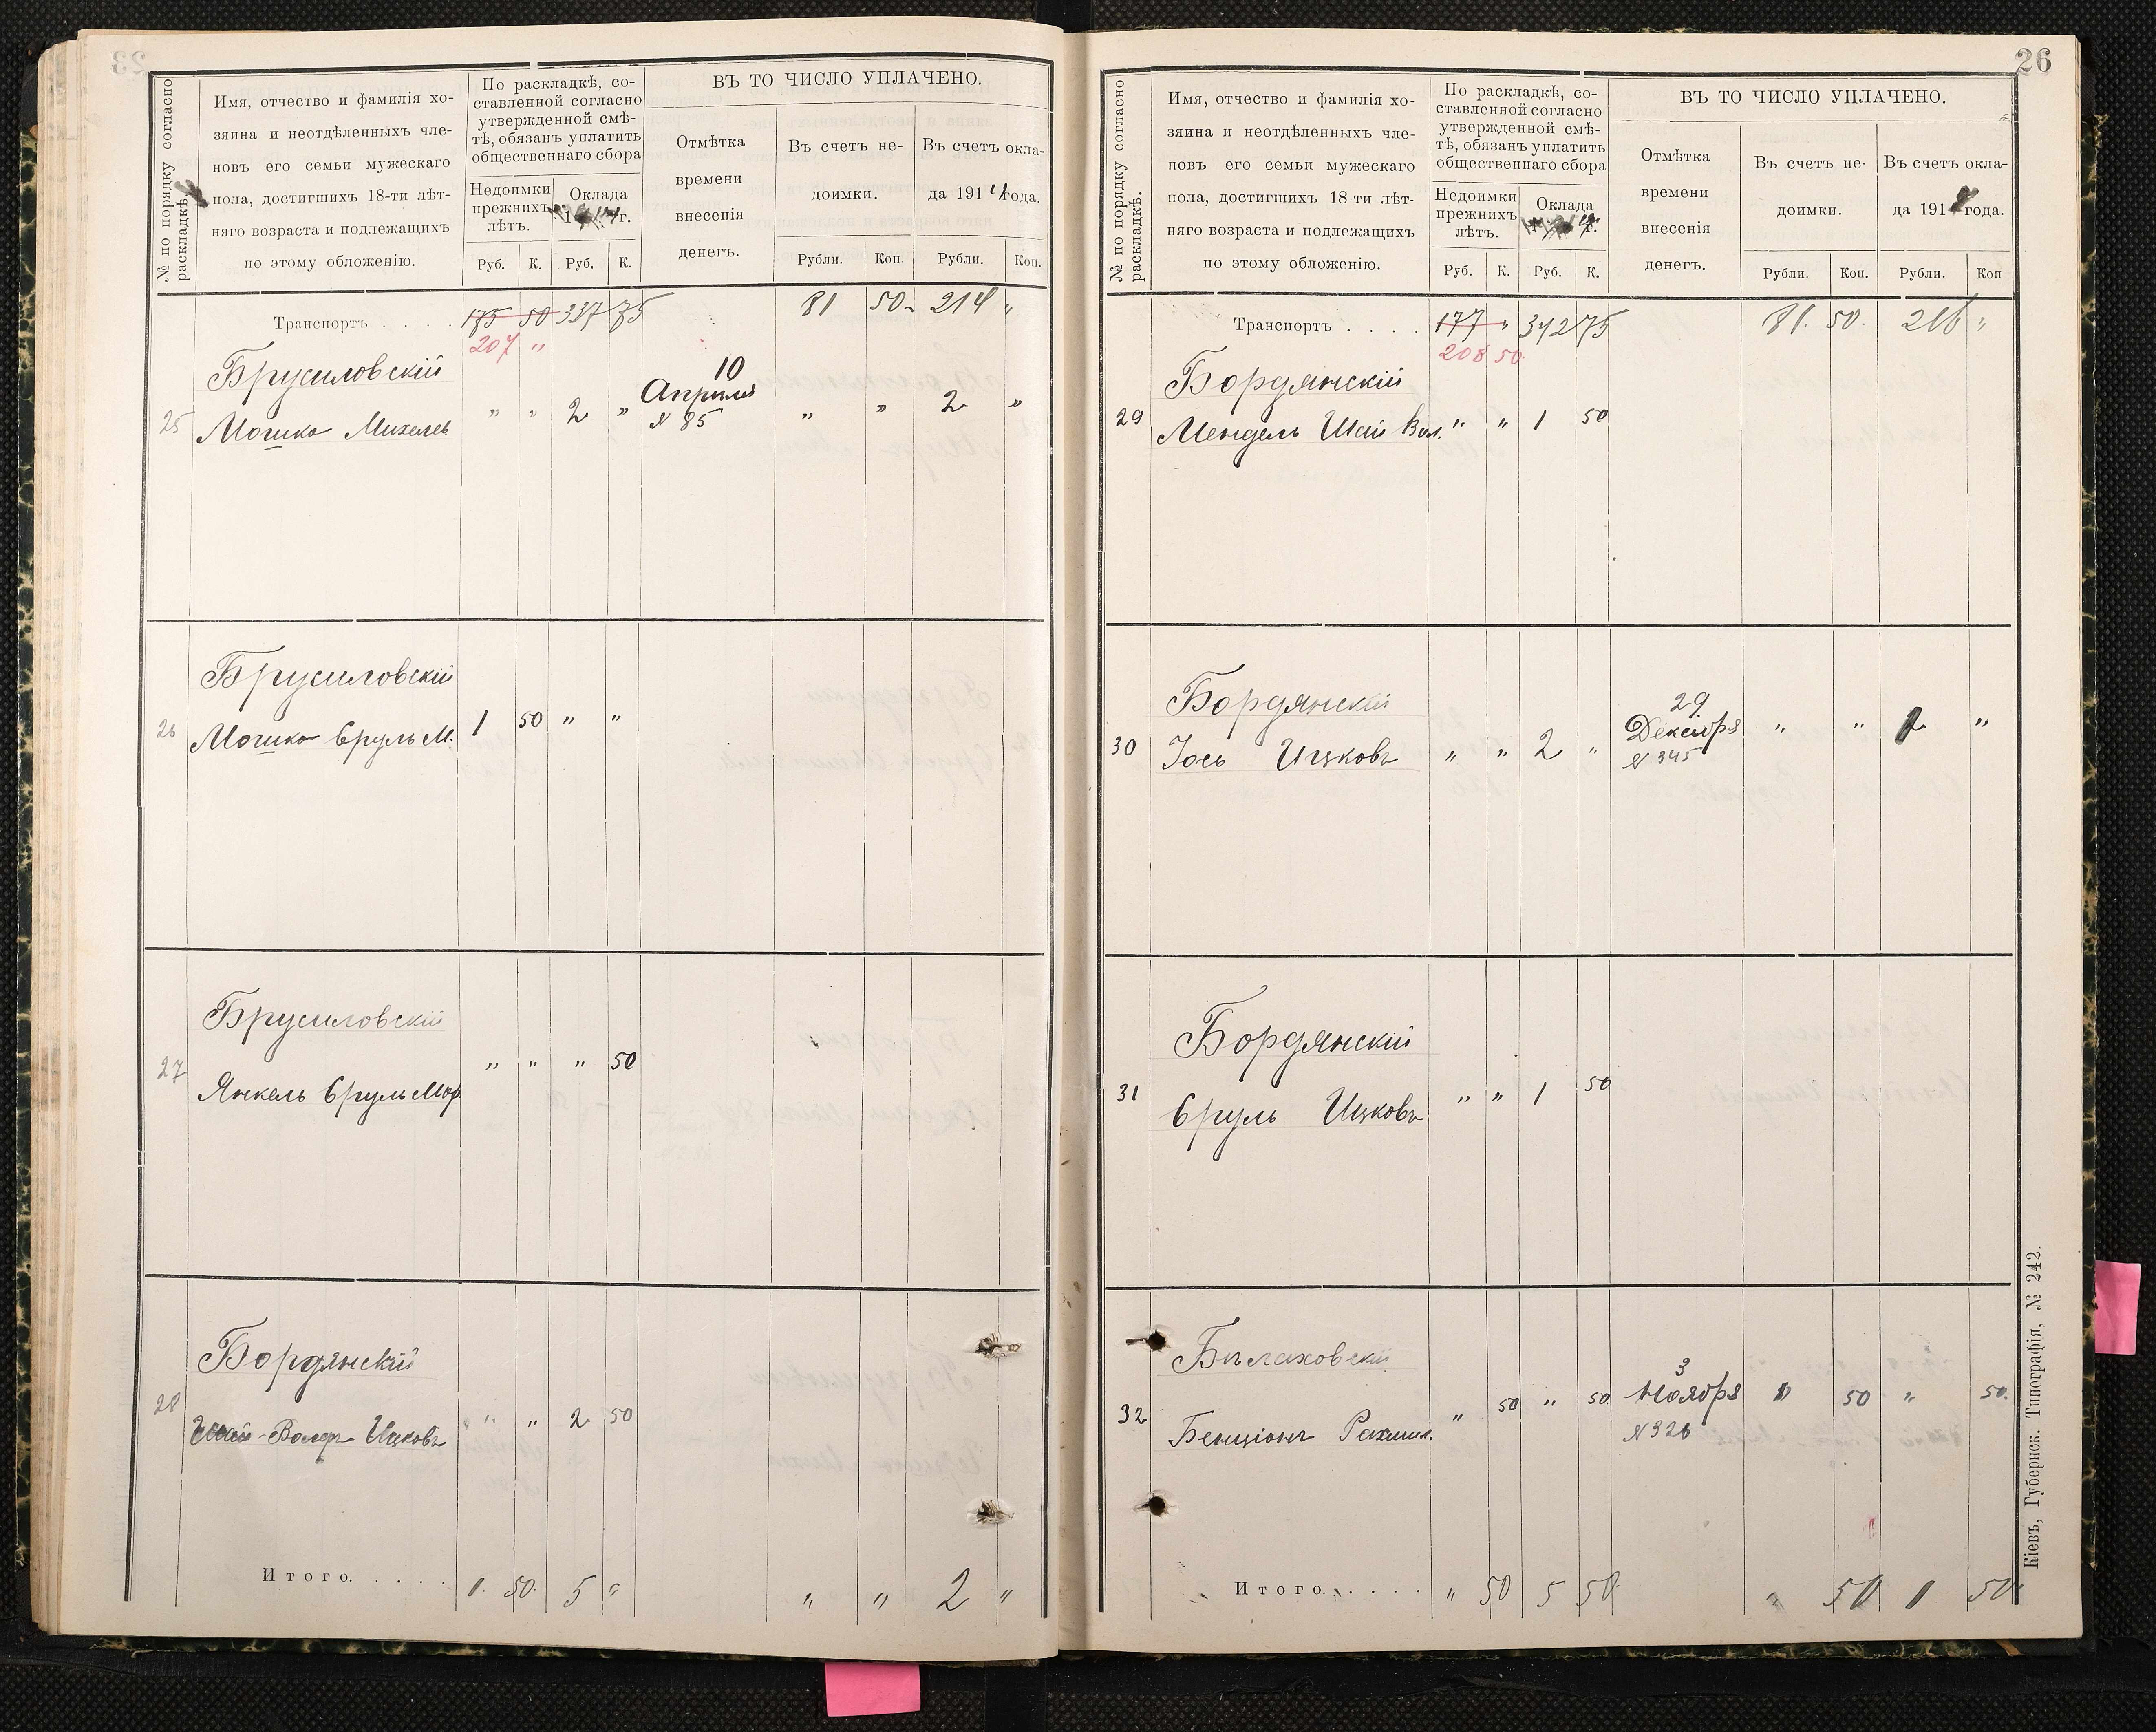 № по порядку согласно раскладкѣ.
Имя, отчество и фамилія хо-
зяина и неотдѣленныхъ чле-
новъ его семьи мужескаго
пола, достигшихъ 18-ти лѣт-
няго возраста и подлежащихъ
по этому обложенію.
По раскладкѣ, со-
ставленной согласно
утвержденной смѣ-
тѣ, обязанъ уплатить
общественнаго сбора
Недоимки
прежнихъ
лѣтъ.
Оклада
г.
Руб. К. Руб. К.
ВЪ ТО ЧИСЛО УПЛАЧЕНО.
Отмѣтка
времени
внесенія
денегъ.
Въ счетъ не-
доимки.
Рубли. Коп
Въ счетъ окла-
да 1914 года.
Рубли. Коп.
Транспортъ . . . . 175 50 337 75 81 50 214 "
207 "
Брусиловскій
25 Мошко Михелев " " 2 " 10 Апрѣля № 85 " " 2 "
Брусиловскій
26 Мошко Сруль М. 1 50 " "
Брусиловскій
27 Янкель Сруль Мор. " " " 50
Бордянскій
28 Шай-Волф Ицковъ " " 2 50
Итого. . . . . 1 50 5 " " " 2 "
26
№ по порядку согласно раскладкѣ.
Имя, отчество и фамилія хо-
зяина и неотдѣленныхъ чле-
новъ его семьи мужескаго
пола, достигшихъ 18 ти лѣт-
няго возраста и подлежащихъ
по этому обложенію.
По раскладкѣ, со-
ставленной согласно
утвержденной смѣ-
тѣ, обязанъ уплатить
общественнаго сбора
Недоимки
прежнихъ
лѣтъ.
Оклада
Руб. К. Руб. К.
ВЪ ТО ЧИСЛО УПЛАЧЕНО.
Отмѣтка
времени
внесенія
денегъ.
Въ счетъ не-
доимки.
Рубли. Коп.
Въ счетъ окла-
да 191 года.
Рубли. Коп
Транспортъ . . . . 177 " 342 75 81 50 216 "
208 50
Бордянскій
29 Мендель Шай Вол. " " 1 50
Бордянскій
30 Іось Ицковъ " " 2 " 29 Декабря № 345 " " "
Бордянскій
31 Сруль Ицковъ " " 1 50
Билаховскій
32 Бенціонъ Рахмил. " 50 " 50 3 Ноября № 326 50 " 50
Итого. . . . . " 50 5 50 " 50 1 50
Кіевъ, Губернск. Типографія, № 242.